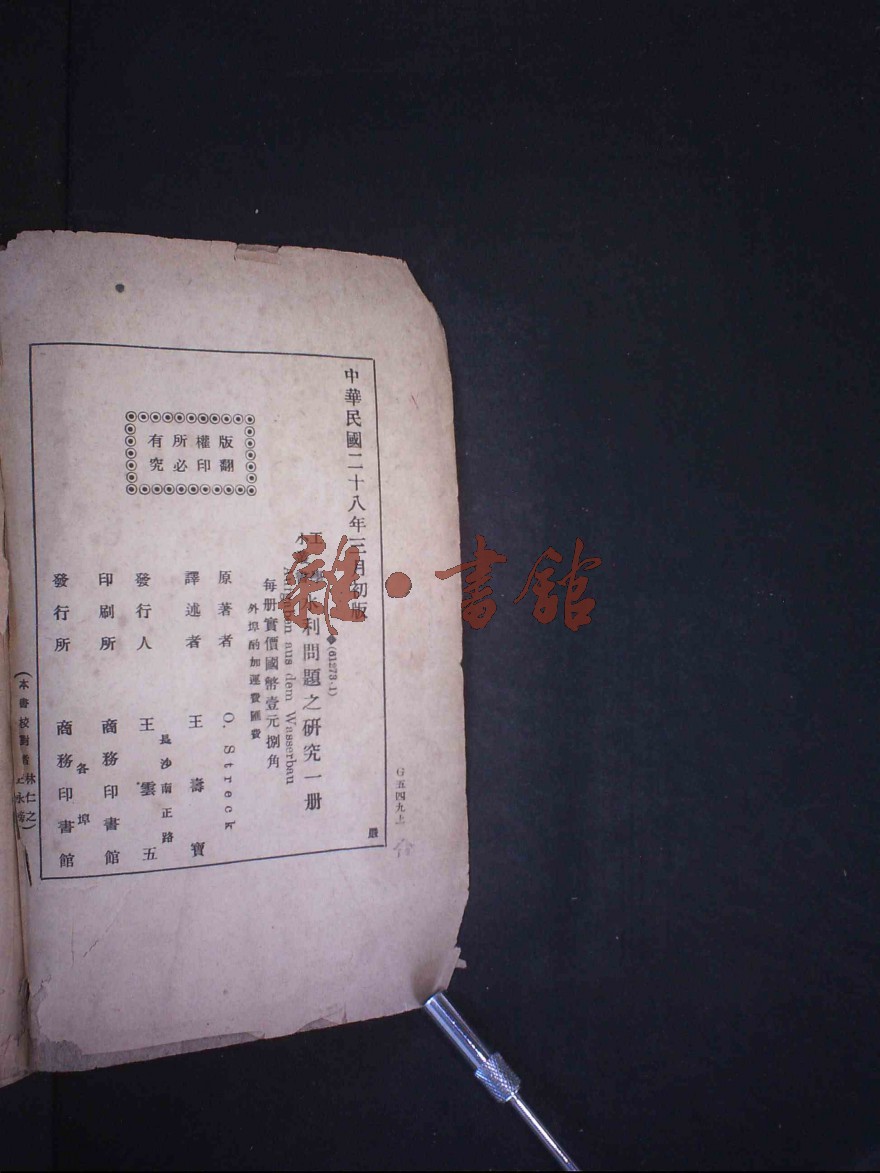 中華民國二十八年三月初版
(61273.1)
水利問題之研究一册
aus dem Wasserbau
每册實價國幣壹元捌角
外埠酌加運費匯費
版權所有
翻印必究
原著者 O. Streck
譯述者 王壽寶
發行人 王雲五
長沙南正路
印刷所 商務印書館
各埠
發行所 商務印書館
(本書校對者林仁之
G五四九上
嚴
雜·書館